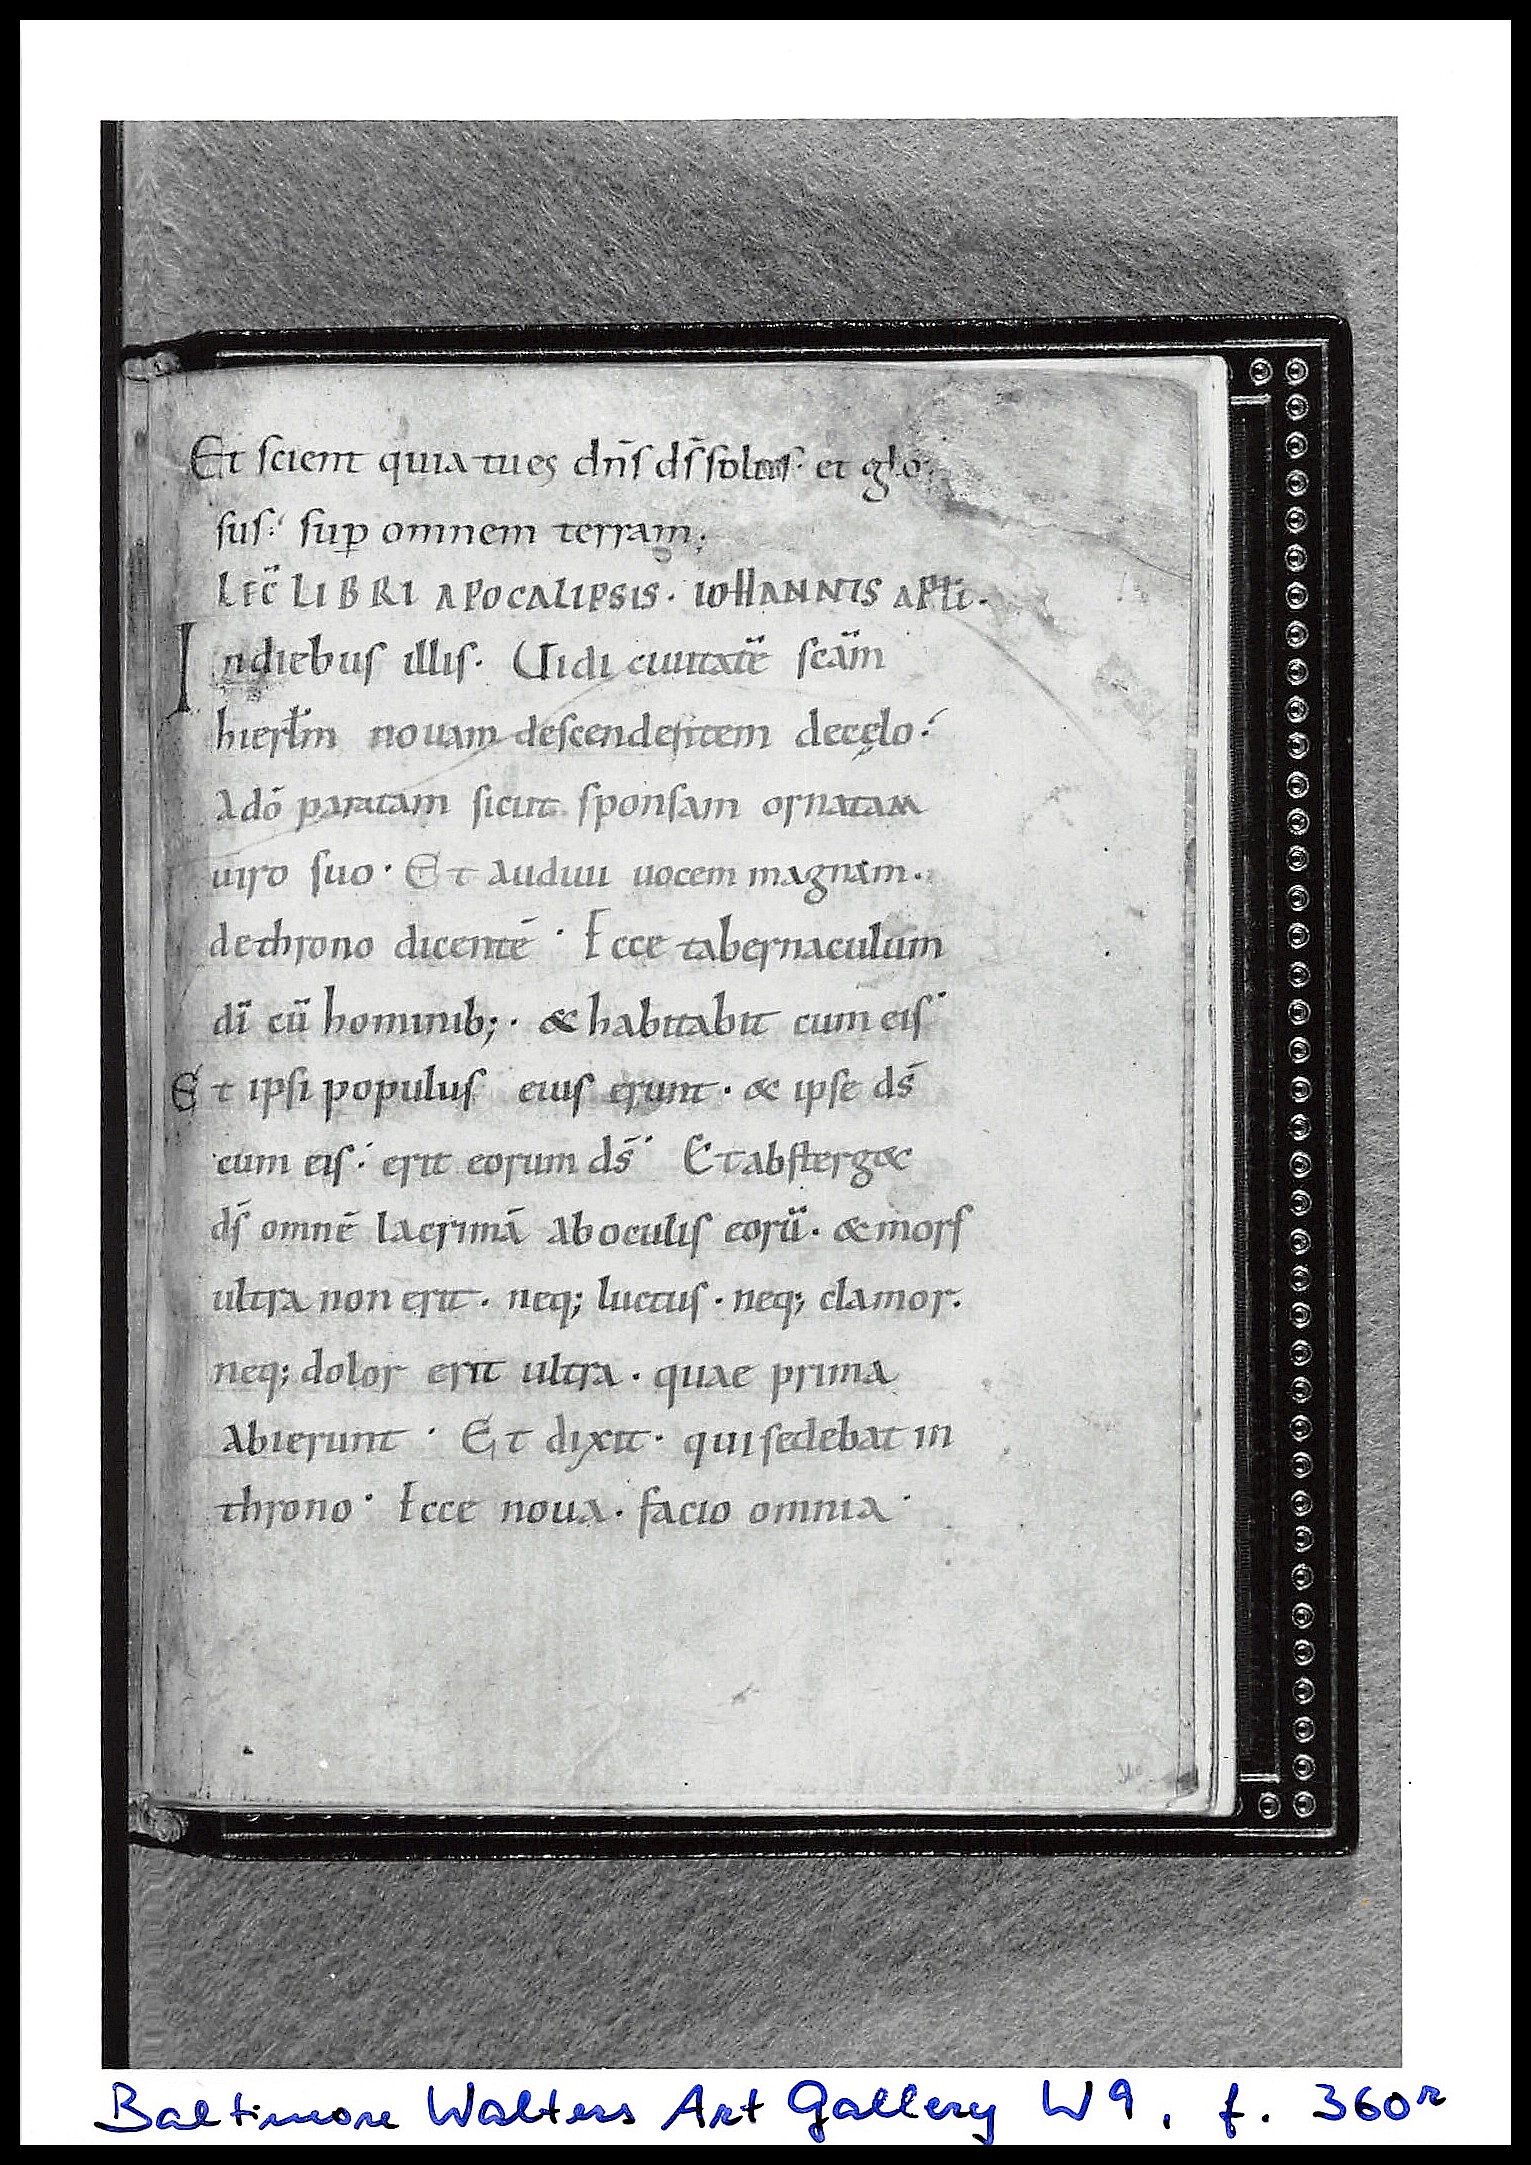 Et scient quia tu es dn̄s ds̄ solus · et glo
sus : sup̱ omnem terram ;
LEC̄ LIBRI APOCALIPSIS · IOHANNIS APLI ·
In diebus illis · Uidi ciuitatē scām
hierlm novam descendentem de cęlo :
A dō paratam sicut sponsam ornatam
uiro suo · Et audiui uocem magnam ·
de throno dicentē · Ecce tabernaculum
dī cū hominib; · & habitabit cum eis ·
Et ipsi populus eius erunt · & ipse ds̄
cum eis · erit eorum ds̄ · Et absterg&
ds̄ omnē lacrimā Ab oculis eorū · & mors
ultra non erit · neq; luctus · neq; clamor ·
neq; dolor erit ultra · quae prima
Abierunt · Et dixit · qui sedebat in
throno · Ecce noua · facio omnia ·
Baltimore Walters Art Gallery W9, f. 360r